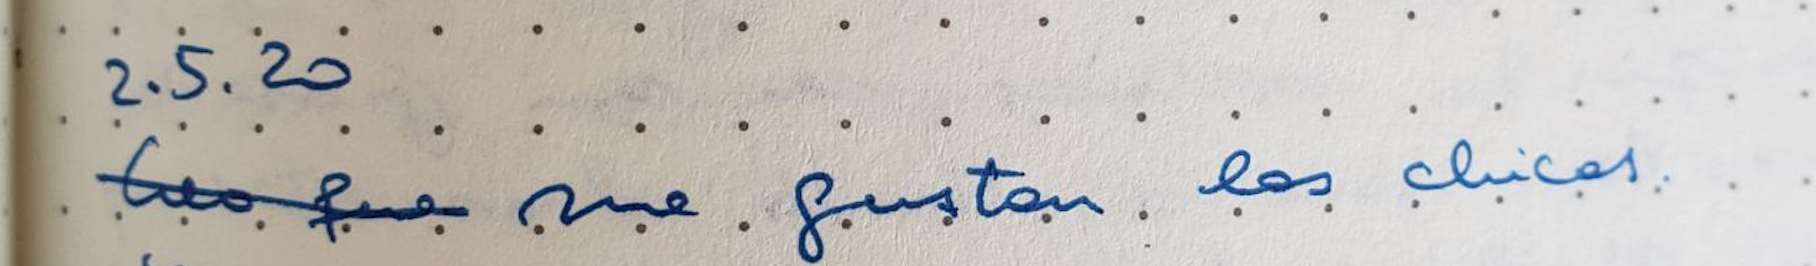 2.5.20
Creo que me gustan las chicas.